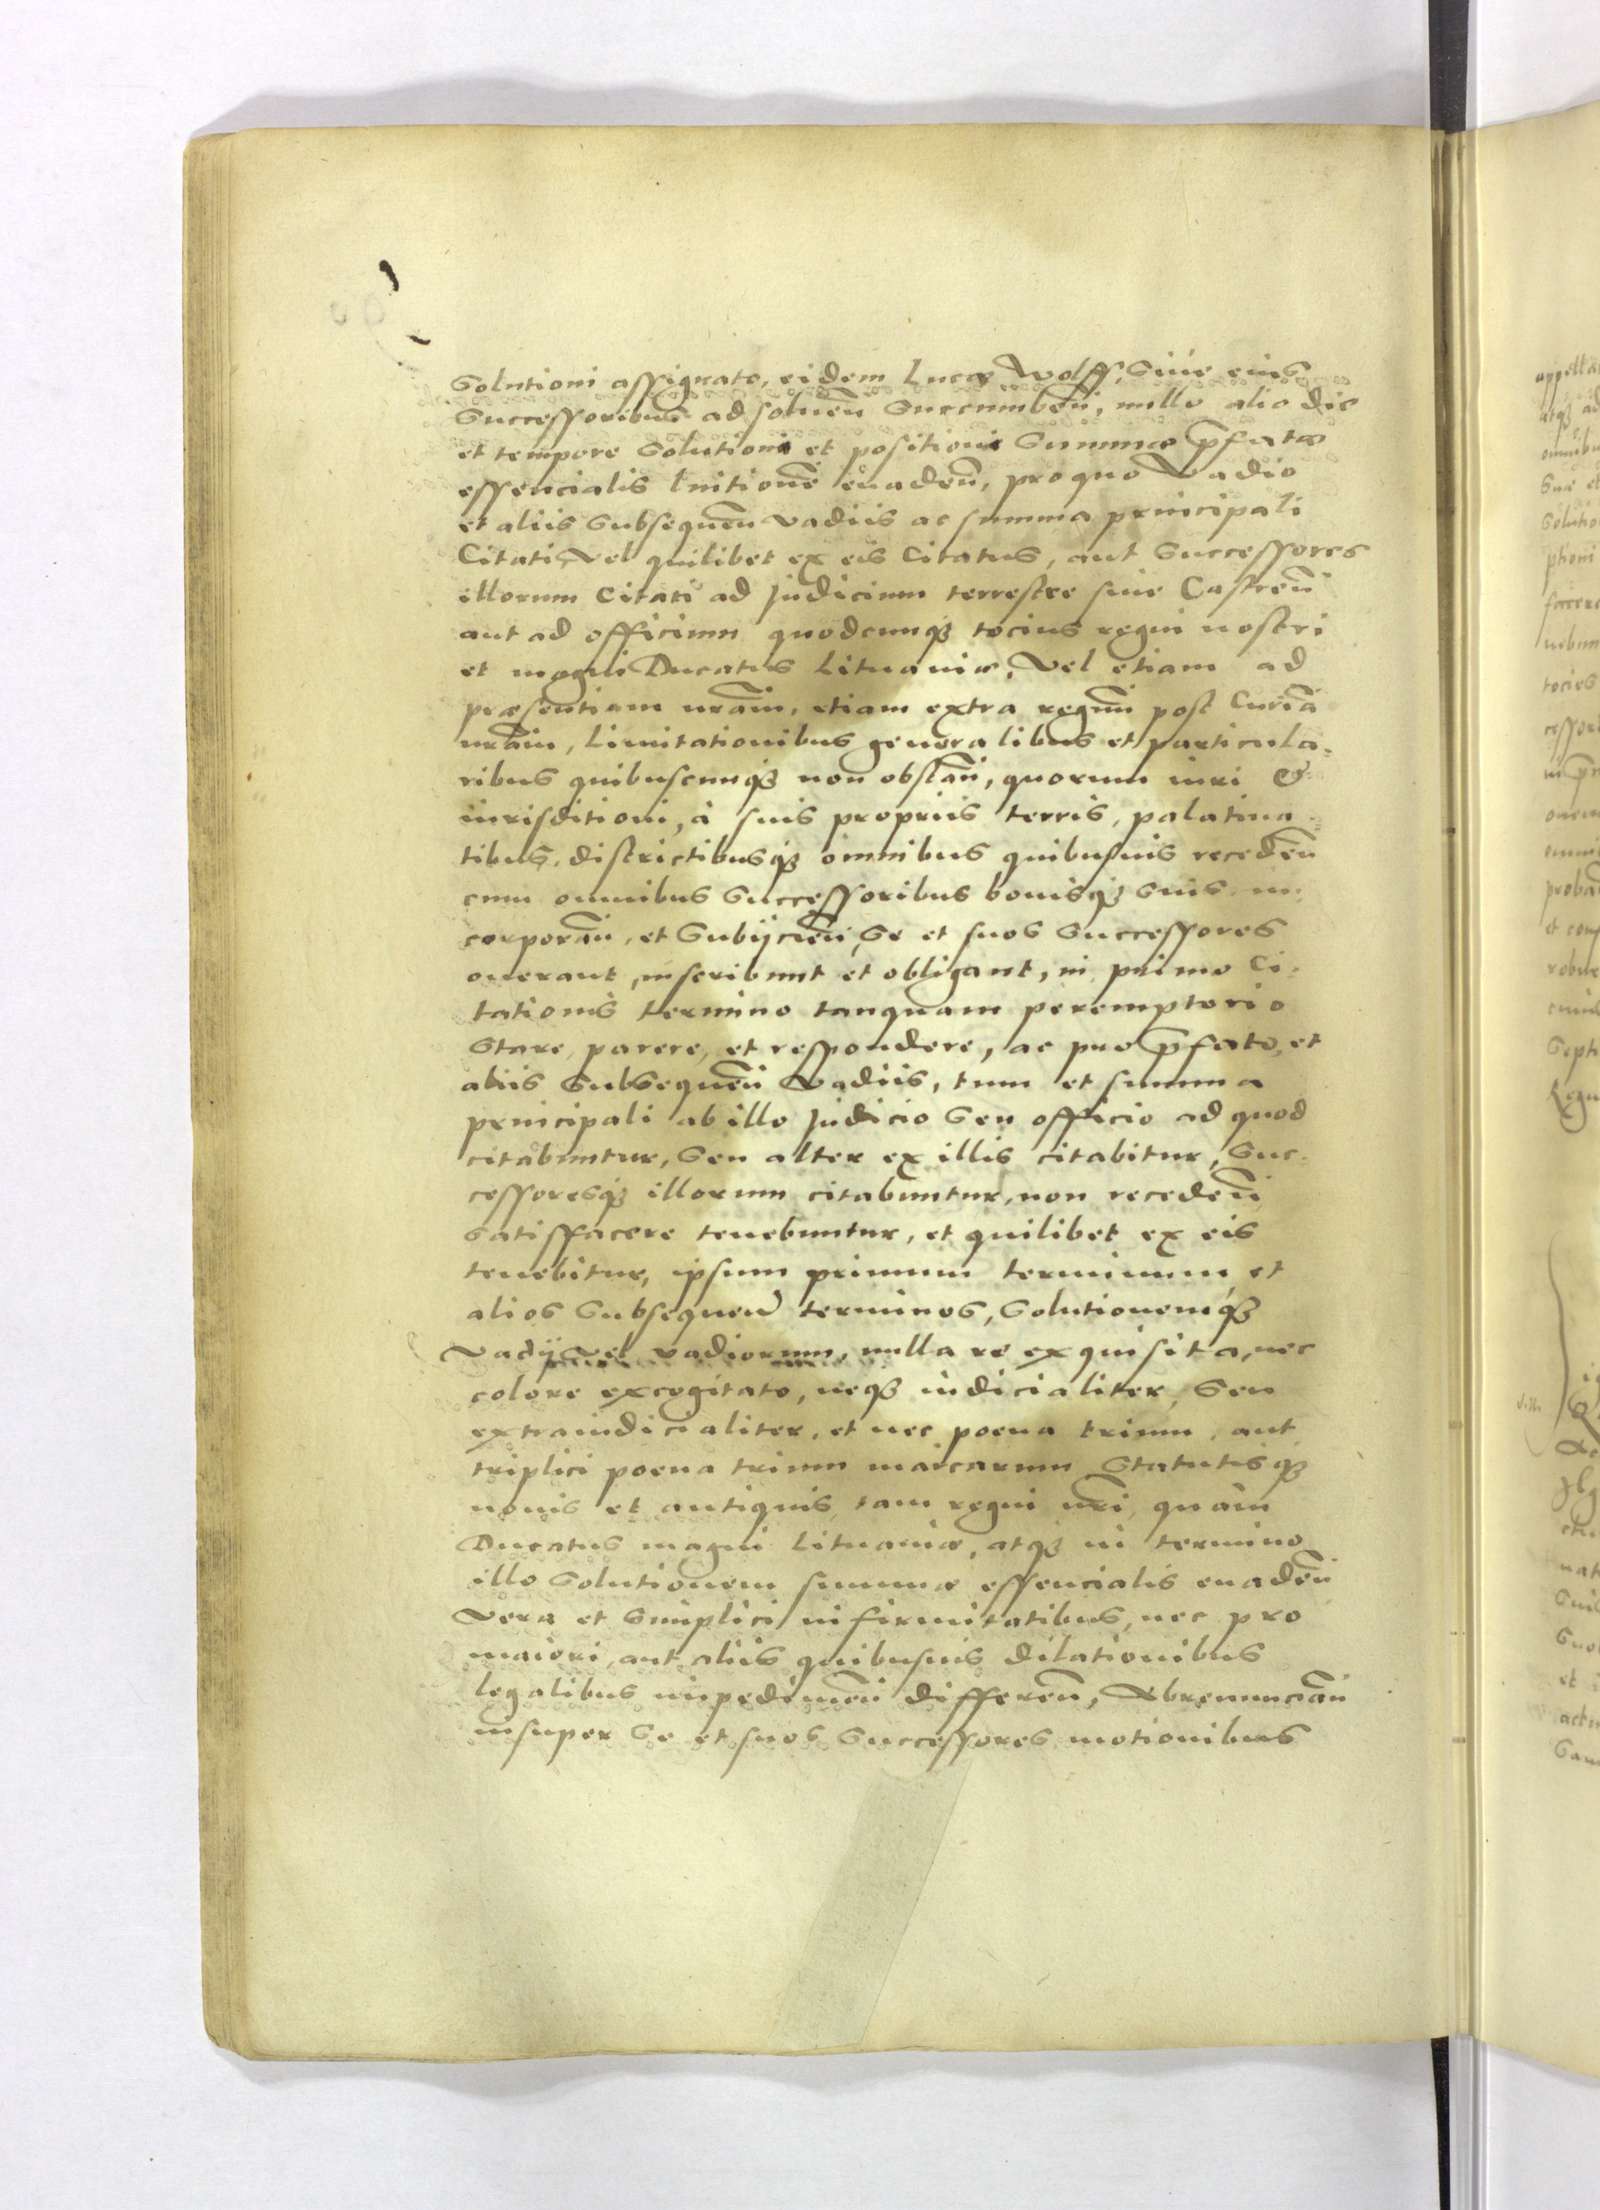 Solutioni assignato, eidem Lucæ Wolff, Siue eius
Successoribus ad soluen̄ Succumben̄, nullo alio die
et tempore Solutioni et positioni Summæ p̄fatæ
essencialis luitione euaden̄, pro quo Vadio
et aliis Subsequen̄ vadiis ac summa principali
Citati, Vel quilibet ex eis Citatus, aut Successores
illorum Citati ad Judicium terrestre siue Castren̄
aut ad officium quodcunqȝ tocius regni nostri
et magni Ducatus Lituaniæ, Vel etiam ad
præsentiam nr̄am, etiam extra regnum post Curiā
nr̄am, Limitationibus generalibus et particula-
ribus quibuscunqȝ non obstan̄, quorum iuri &
iurisditioni, à suis propriis terris, palatina-
tibus, districtibusqȝ omnibus quibusuis receden̄
cum omnibus Successoribus bonisqȝ suis in-
corporan̄, et Subijcien̄, Se et suos Successores
onerant, inscribunt et obligant, in primo Ci-
tationis termino tanquam peremptorio
Stare, parere, et respondere, ac pro p̄fato, et
aliis Subsequen̄ Vadiis, tum et summa
principali ab illo Judicio Seu officio ad quod
citabuntur, Seu alter ex illis citabitur, Suc-
cessoresqȝ illorum citabuntur, non receden̄
Satisfacere tenebuntur, et quilibet ex eis
tenebitur, ipsum primum terminum, et
alios Subsequen̄ terminos, Solutionemqȝ
Vadij Vel vadiorum, nulla re exquisita, nec
colore excogitato, neqȝ iudicialiter, Seu
extraiudicialiter, et nec poena trium, aut
triplici poena trium marcarum Statutisqȝ
nouis et antiquis, tam regni nr̄i, quàm
Ducatus magni Lituaniæ, atqȝ in termino
illo Solutionem summæ essencialis euaden̄
Vera et Simplici infirmitatibus, nec pro
maiori, aut aliis quibusuis dilationibus
legalibus impedimen̄ differen̄, Abrenuncian̄
insuper Se et suos Successores motionibus